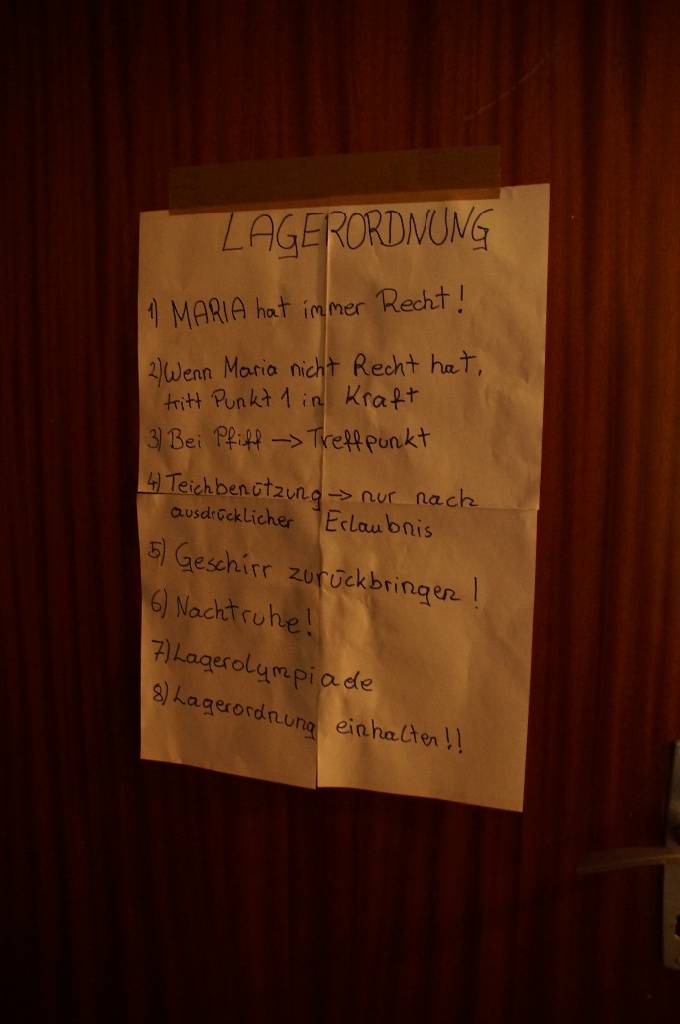 LAGERORDNUNG
1) MARIA hat immer Recht!
2) Wenn Maria nicht Recht hat,
tritt Punkt 1 in Kraft
3) Bei Pfiff -> Treffpunkt
4) Teichbenützung -> nur nach
ausdrücklicher Erlaubnis
5) Geschirr zurückbringen!
6) Nachtruhe!
7) Lagerolympiade
8) Lagerordnung einhalten!!